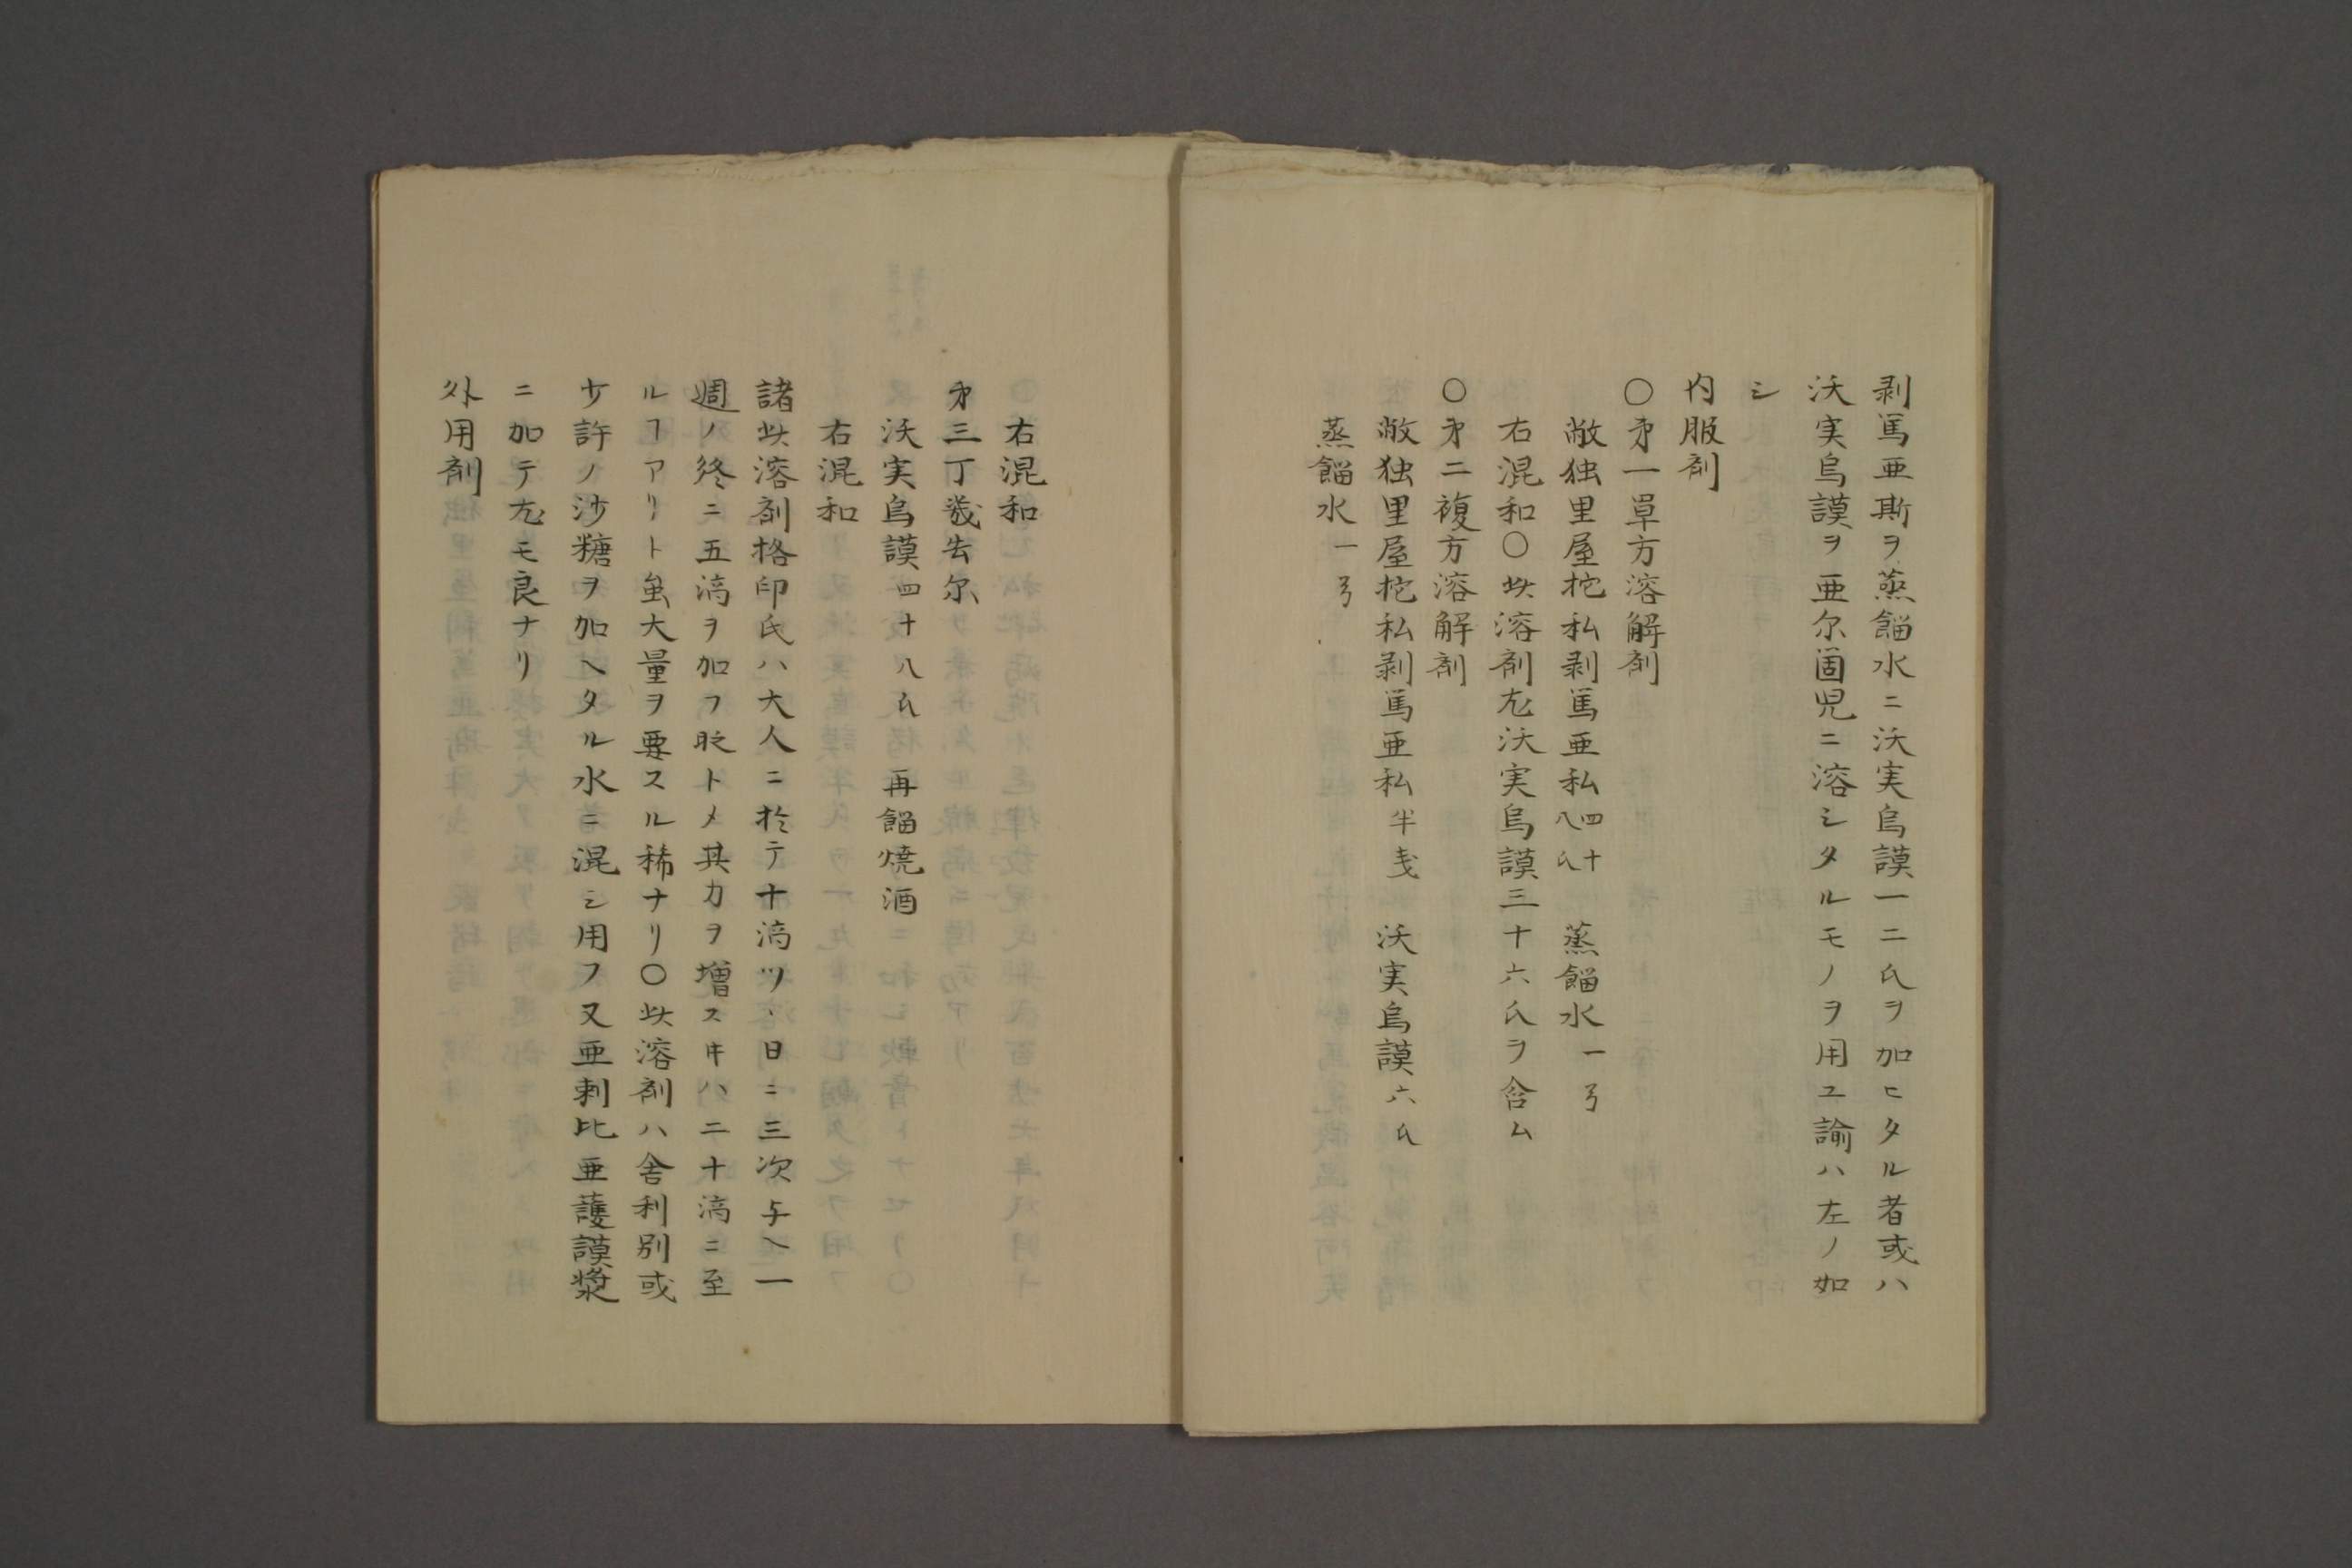 剥篤亜斯ヲ蒸餾水ニ沃実烏謨一二氏ヲ加ヒタル者或ハ
沃実烏謨ヲ亜尓箇児ニ溶シタルモノヲ用ユ諭ハ左ノ如
シ
内服剤
〇第一単方溶解剤
敞独里屋挖私剥篤亜私四十八氏 蒸餾水一弓
右混和〇此溶剤尤沃実烏謨三十六氏ヲ含ム
〇第二複方溶解剤
敞独里屋挖私剥篤亜私半戔 沃実烏謨六氏
蒸餾水一弓
右混和
第三丁幾去尓
沃実烏謨四十八氏 再餾焼酒
右混和
諸此溶剤格印氏ハ大人ニ於テ十滴ツヽ日ニ三次与ヘ一
週ノ終ニ五滴ヲ加フ眨トメ其力ヲ増スキハ二十滴ニ至
ルヿアリト虽大量ヲ要スル稀ナリ〇此溶剤ハ舎利別或
少許ノ沙糖ヲ加ヘタル水ニ混シ用フ又亜剌比亜護謨漿
ニ加テ尤モ良ナリ
外用剤